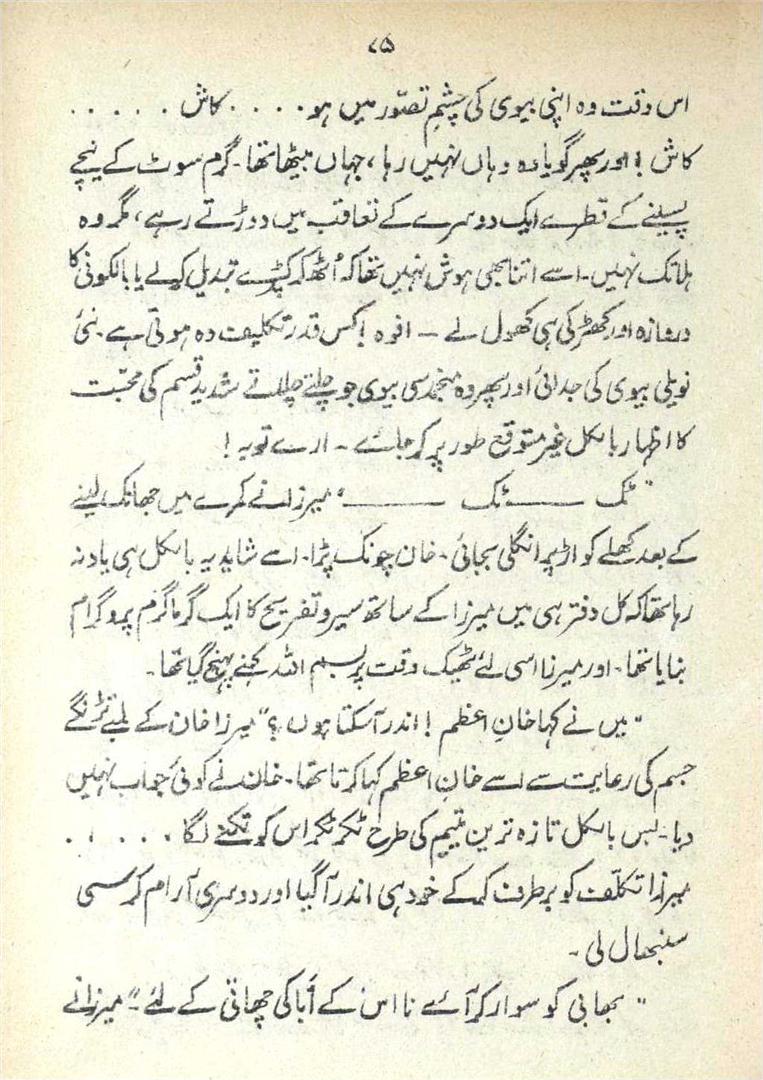 ۷۵
اس وقت وہ اپنی بیوی کی چشمِ تصوّر میں ہو . . . . کاش . . . . .
کاش ! اور پھر گویا وہ وہاں نہیں رہا ، جہاں بیٹھا تھا۔ گرم سوٹ کے نیچے
پسینے کے قطرے ایک دوسرے کے تعاقب میں دوڑتے رہے ، مگر وہ
ہلا تک نہیں۔ اسے اتنا بھی ہوش نہیں تھا کہ اُٹھ کر کپڑے تبدیل کرلے یا بالکونی کا
دروازہ اور کھڑکی ہی کھول لے ۔ افوہ ! کس قدر تکلیف دہ ہوتی ہے نئی
نویلی بیوی کی جدائی اور پھر وہ منجمد سی بیوی جو چلتے چلاتے شدید قسم کی محبّت
کا اظہار بالکل غیر متوقع طور پر کر جائے ۔ ارے توبہ !
" ٹک ——— ٹک ——— " میرزا نے کمرے میں جھانک لینے
کے بعد کھلے کواڑ پر انگلی بجائی ۔ خان چونک پڑا۔ اسے شاید یہ بالکل ہی یاد نہ
رہا تھا کہ کل دفتر ہی میں میرزا کے ساتھ سیر و تفریح کا ایک گرما گرم پروگرام
بنایا تھا ۔ اور میرزا اسی لئے ٹھیک وقت پر بسم اللہ کہنے پہنچ گیا تھا ۔
" میں نے کہا خانِ اعظم ! اندر آ سکتا ہوں ؟ " میرزا خان کے لمبے تڑنگے
جسم کی رعایت سے اسے خانِ اعظم کہا کرتا تھا۔ خان نے کوئی جواب نہیں
دیا۔ بس بالکل تازہ ترین یتیم کی طرح ٹکر ٹکر اس کو تکنے لگا . . . . .
میرزا تکلّف کو برطرف کر کے خود ہی اندر آ گیا اور دوسری آرام کرسی
سنبھال لی ۔
" بھابی کو سوار کر آئے نا اس کے اُبا کی چھاتی کے لئے ۔" میرزا نے